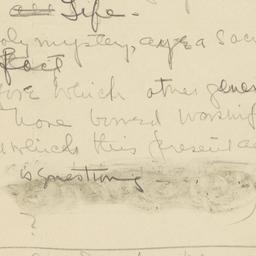 all Life -
oly mystery, aye a Sac
fact
ore which other gener
have bowed worship
which this present a
is questioning
?